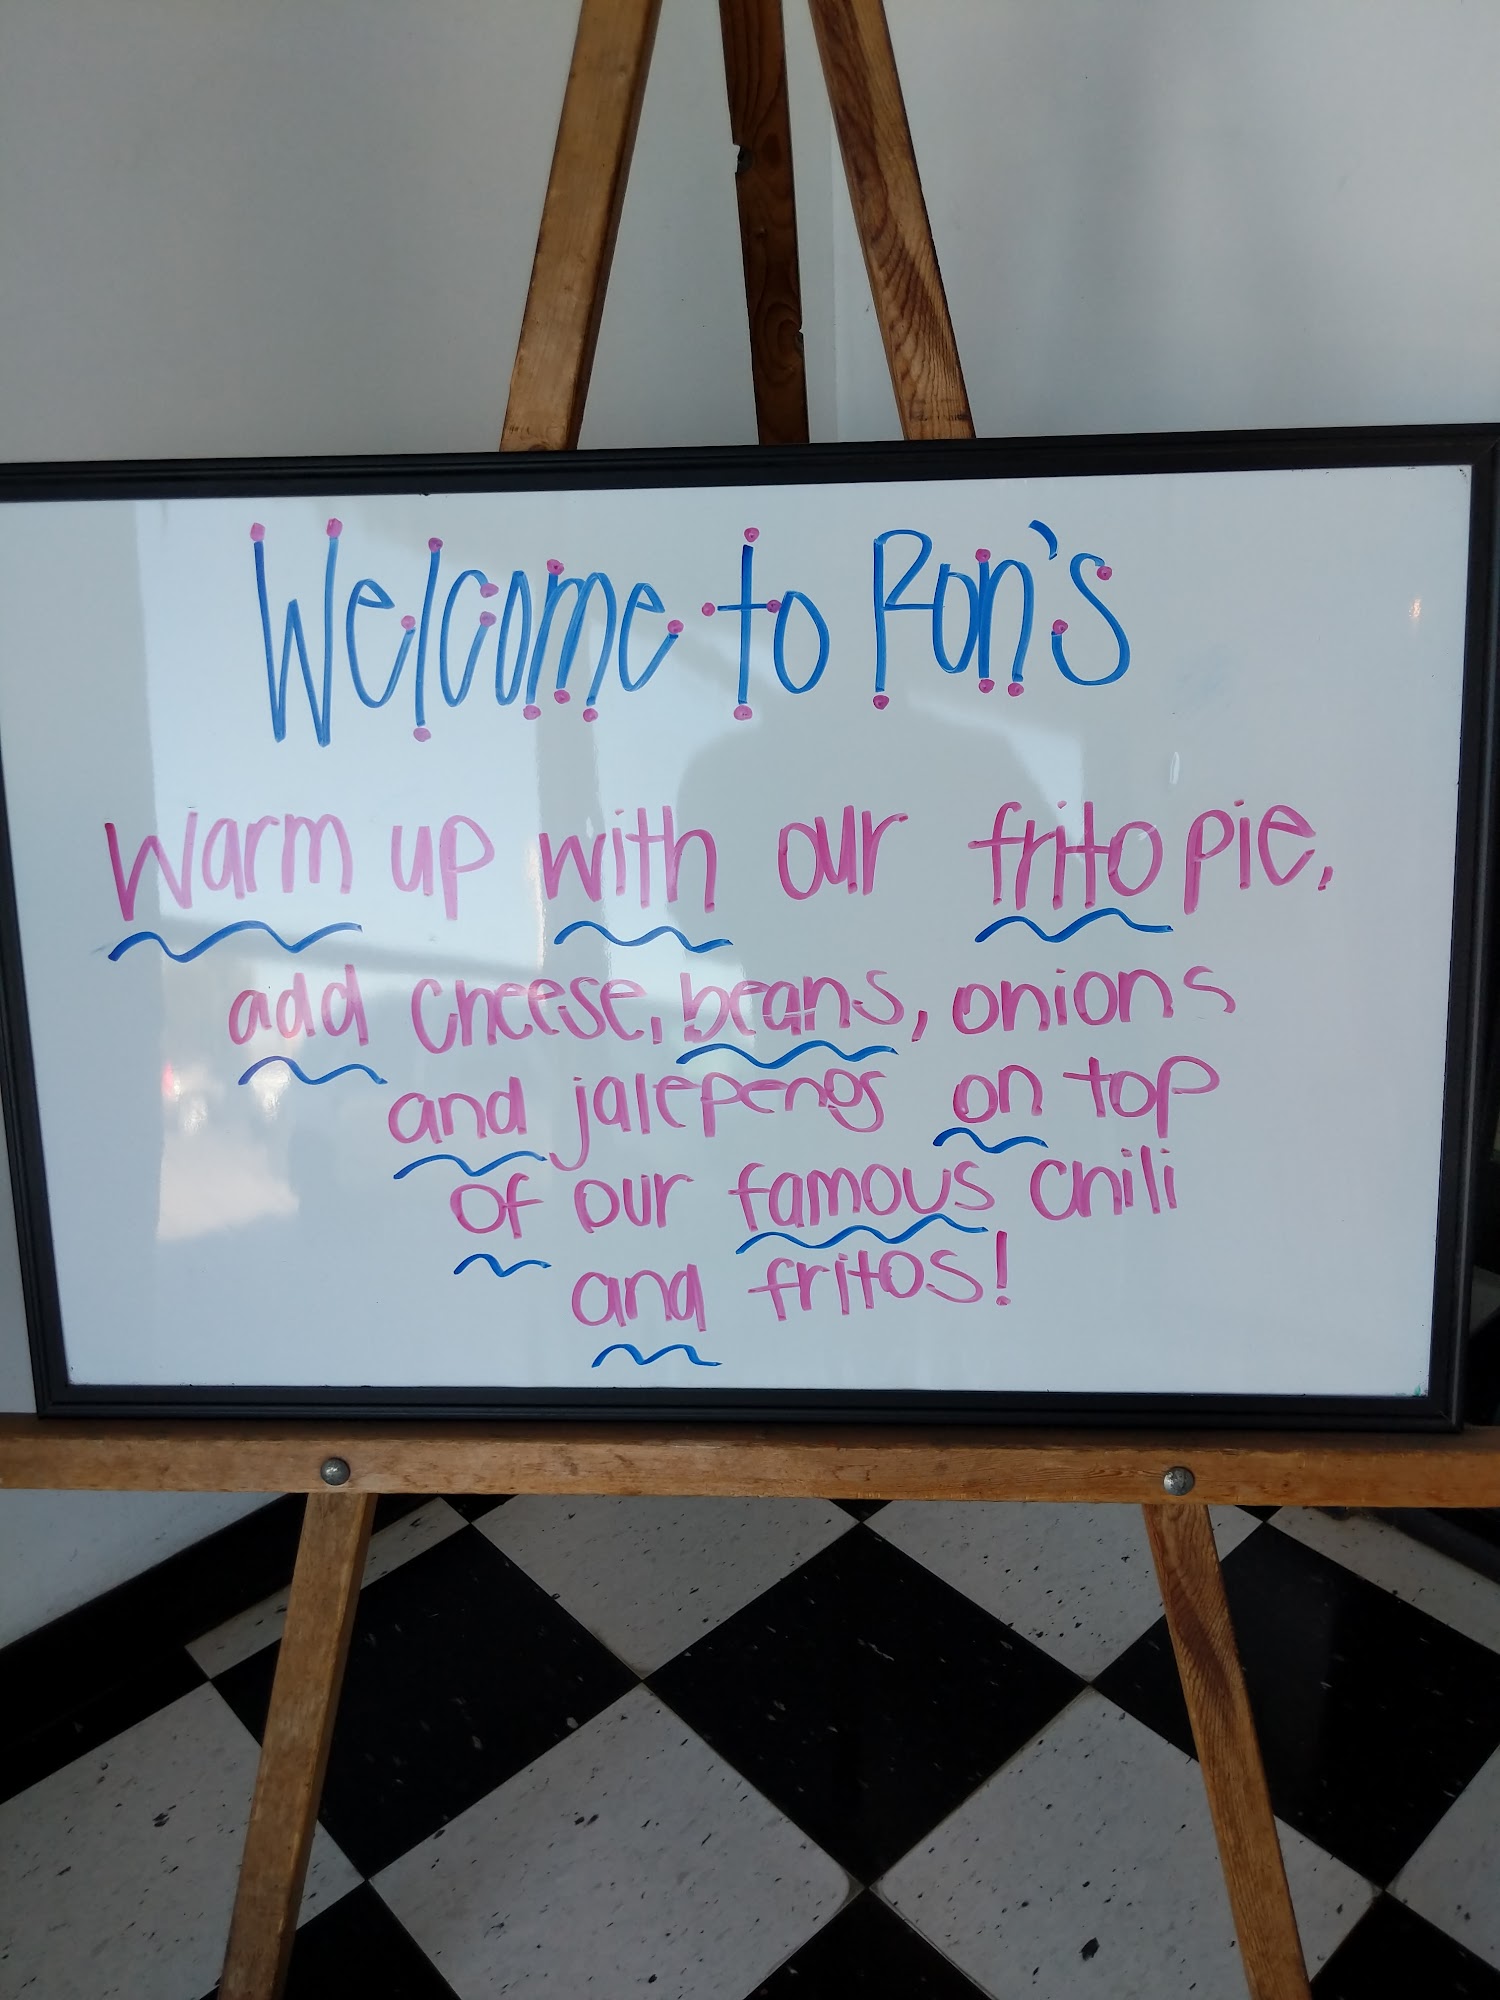 Welcome to Ron's
Warm up with our frito pie,
add cheese, beans, onions
and jalepenos on top
of our famous chili
and fritos!